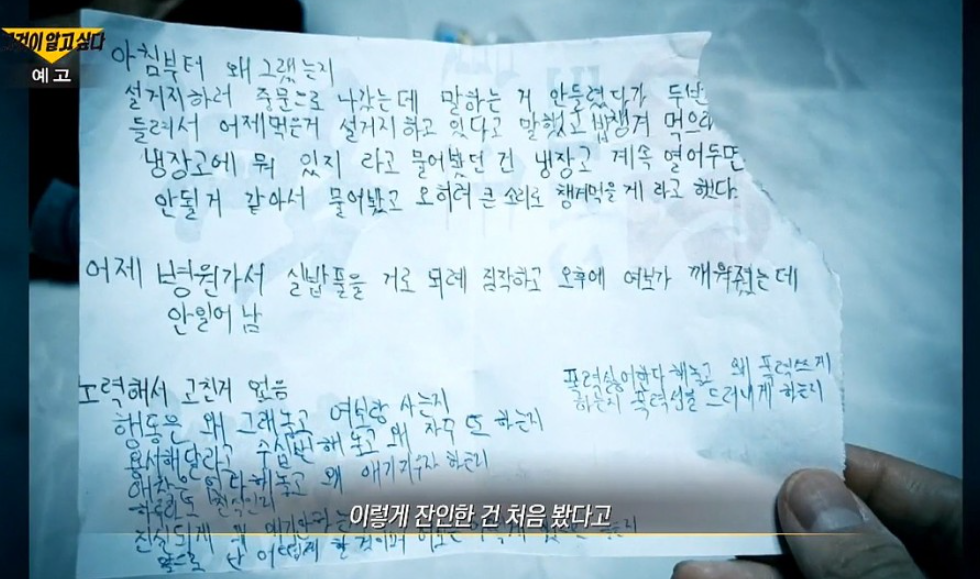 그것이 알고 싶다
예고
아침부터 왜그랬는지
설거지하러 주문으로 나갔는데 말하는 거 안들렸다가 두번
들려서 어제먹은거 설거지하고 있다고 말했고 밥챙겨 먹으라
냉장고에 뭐 있지 라고 물어봤던 건 냉장고 계속 열어두면
안될거 같아서 물어봤고 오히려 큰 소리로 챙겨먹을게 라고 했다.
어제 병원가서 실밥풀을 거로 되레 짐작하고 오후에 여보가 깨워줬는데
안일어남
노력해서 고친거 없음
폭력싫어한다 해놓고 왜 폭력쓰게
하는지 폭력성을 드러내게 하는지
행동은 왜 그래놓고 여보랑 사는지
용서해달라고 수십번 해놓고 왜 자꾸 또 하는지
해놓고 왜 얘기
이렇게 잔인한 건 처음 봤다고
진실되게 왜